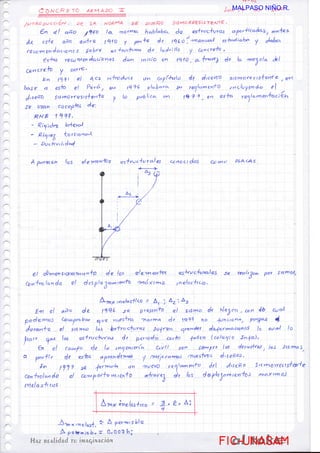 CONCRETO ARMADO II
MALPASO NIÑO R.
INTRODUCCIÓN DE LA NORMA DE DISEÑO SISMORESISTENTE.
En el año 1980 la norma hablaba de estructuras aporticadas, antes
de este año entre 1970 y antes de 1960 manual estudiaban y daban
recomendaciones sobre estructura de ladrillo y concreto.
Estas recomendaciones dan inicio en 1970 a través de la mezcla del
concreto y acero.
En 1971 el ACI introduce un capítulo de diseño sismoresistente, en
base a esto el Perú, en 1976 elabora su reglamento incluyendo el
diseño sismoresistente y lo publica en 1977, en esta reglamentación
se usan conceptos de:
RNE 1997.
- Rigidez lateral
- Rigidez torsional
- Ductilidad
Aparecen los elementos estructurales conocidos como PLACAS.
Δ3
Δ2
Δ1
el dimensionamiento de los elementos estructurales se realizan por sismo,
controlando el desplazamiento máximo inelástico.
Δmáx inelástico = Δ1 ; Δ2 ; Δ3
En el año de 1996 se presentó el sismo de Nazca, con el cual
podemos comprobar que nuestra norma de 1977 no funciona, porque
durante el sismo las estructuras sufren grandes deformaciones lo cual lo
hace que las estructuras de periodo corto fallen (colegio Inpos).
En el campo de la ingeniería civil son siempre los desastres, los sismos,
a partir de estos aprendemos y mejoramos nuestros diseños.
En 1997 se formula un nuevo reglamento del diseño sismoresistente
controlando el comportamiento através de los desplazamientos máximos
inelásticos
Δmáx inelástico = 3/4 × R × Δi
Δmáx inelást. ≤ Δ permisible
Δ permisib. = 0.007h;
Haz realidad tu imaginación
FIC-UNASAM